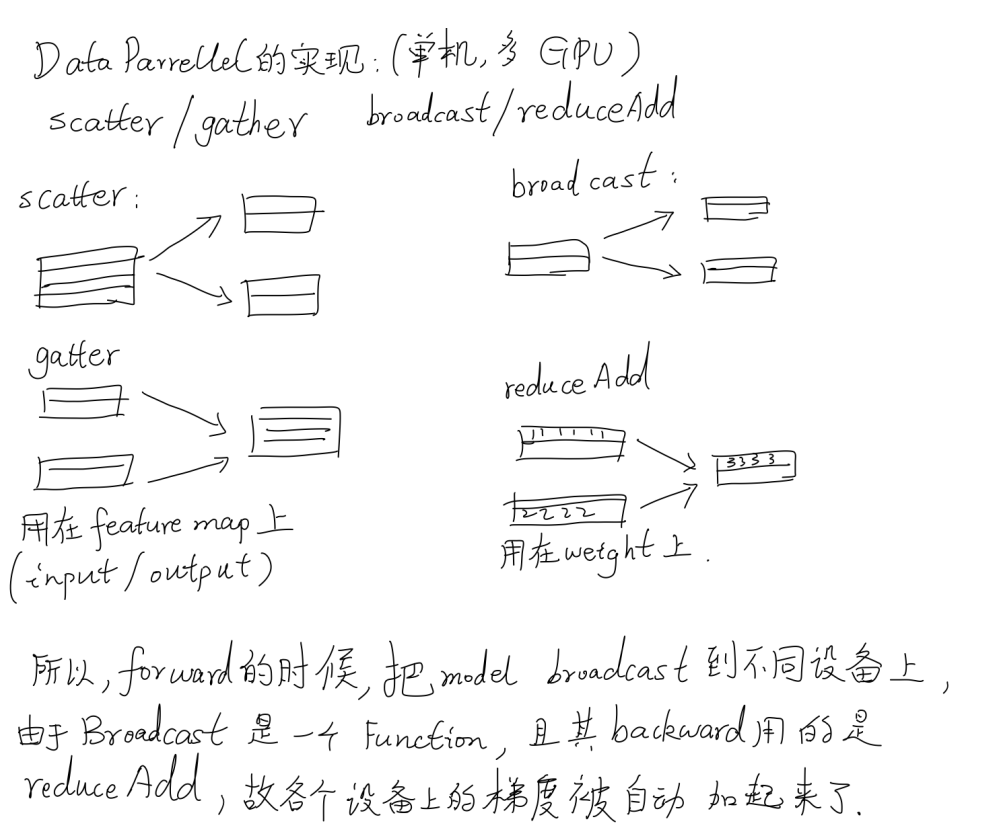 Data Parrellel的实现:(单机,多 GPU)
scatter/gather broadcast/reduceAdd
scatter:
broadcast:
gatter
reduce Add
1 1 1 1 1 1
3 3 3 3
2 2 2 2
用在 feature map 上
(input/output)
用在 weight 上.
所以, forward的时候, 把 model broadcast 到不同设备上,
由于 Broadcast 是一个 Function, 且其 backward 用的是
reduce Add, 故各个设备上的梯度被自动加起来了.